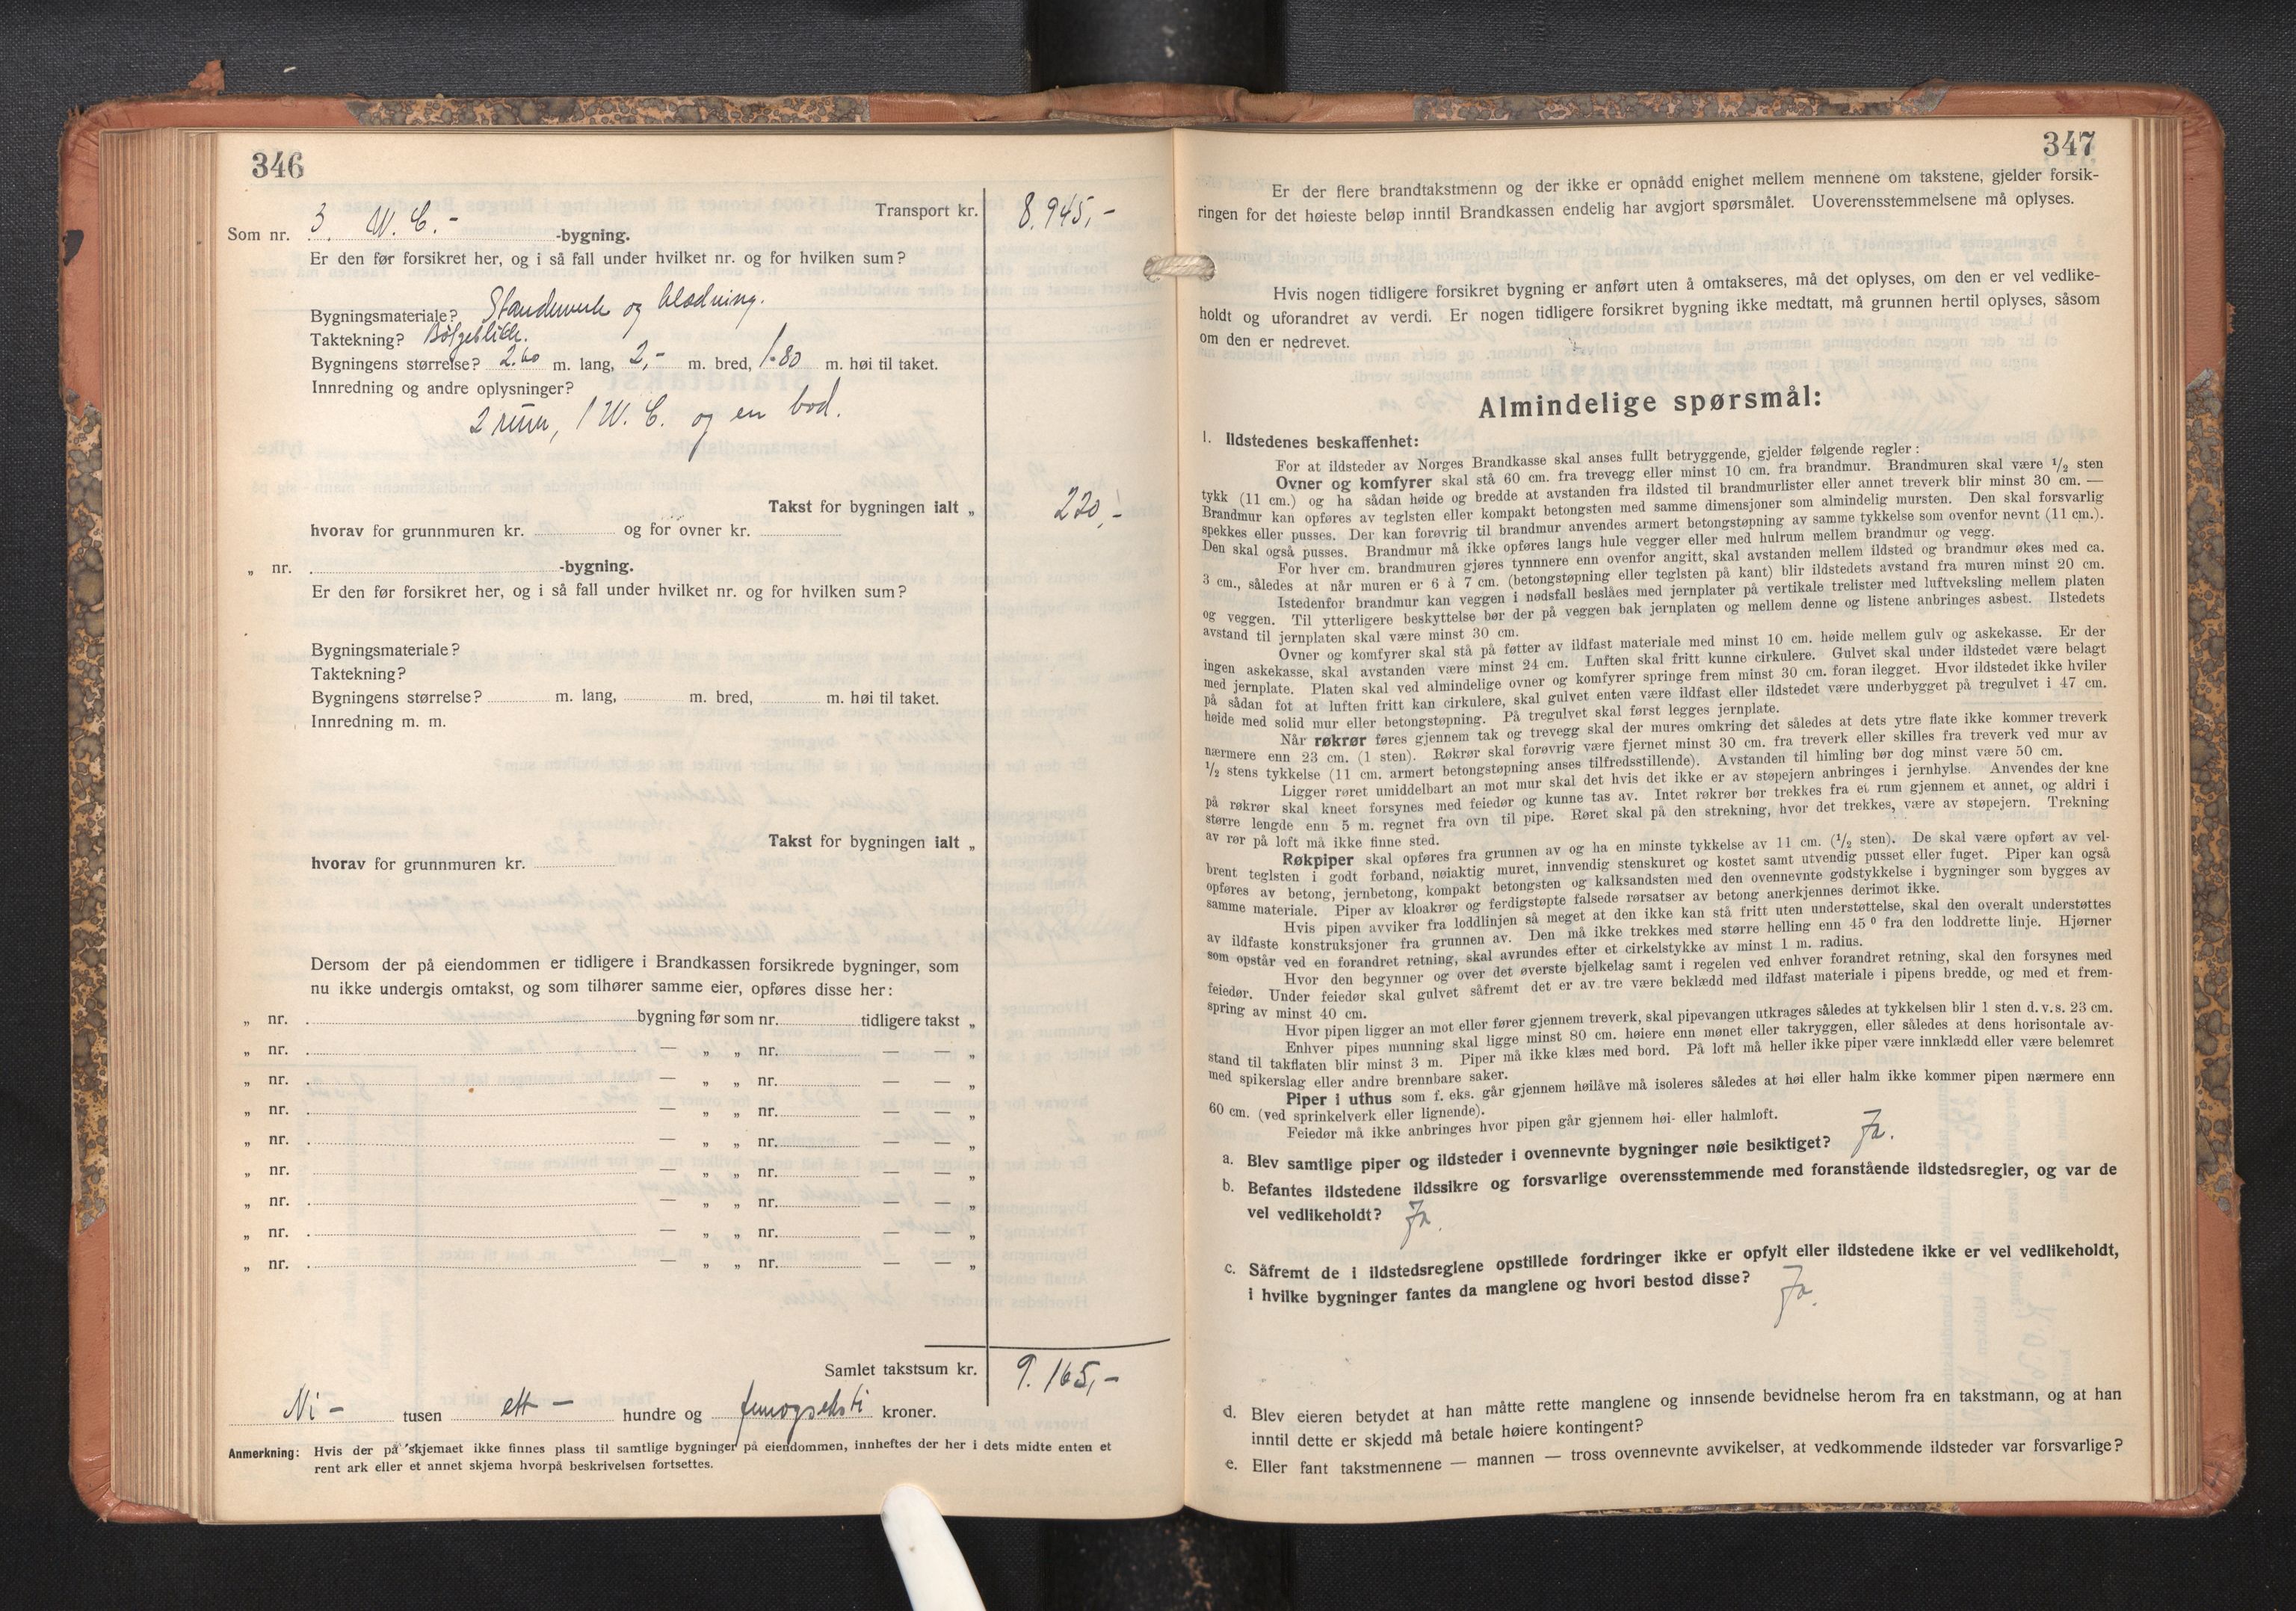 346
Transport kr. 8.945,-
Som nr. 3. W. C. - -bygning.
Er den før forsikret her, og i så fall under hvilket nr. og for hvilken sum?
Bygningsmateriale? Standerverk og klædning.
Taktekning? Bølgeblikk.
Bygningens størrelse? 2.60 m. lang, 2,- m. bred, 1.80 m. høi til taket.
Innredning og andre oplysninger?
2 rum, 1 W. C. og en bod.
Takst for bygningen ialt „ 220,-
hvorav for grunnmuren kr. og for ovner kr.
„ nr. -bygning.
Er den før forsikret her, og i så fall under hvilket nr. og for hvilken sum?
Bygningsmateriale?
Taktekning?
Bygningens størrelse? m. lang, m. bred, m. høi til taket.
Innredning m. m.
Takst for bygningen ialt „
hvorav for grunnmuren kr.
Dersom der på eiendommen er tidligere i Brandkassen forsikrede bygninger, som
nu ikke undergis omtakst, og som tilhører samme eier, opføres disse her:
„ nr. bygning før som nr. tidligere takst „
„ nr. — „ „ nr. — — „
„ nr. — „ „ nr. — — „
„ nr. — „ „ nr. — — „
„ nr. — „ „ nr. — — „
„ nr. — „ „ nr. — — „
„ nr. — „ „ nr. — — „
„ nr. — „ „ nr. — — „
„ nr. — „ „ nr. — — „
Samlet takstsum kr. 9.165,-
Ni - tusen ett - hundre og femogseksti kroner.
Anmerkning: Hvis der på skjemaet ikke finnes plass til samtlige bygninger på eiendommen, innheftes der her i dets midte enten et
rent ark eller et annet skjema hvorpå beskrivelsen fortsettes.
347
Er der flere brandtakstmenn og der ikke er opnådd enighet mellem mennene om takstene, gjelder forsik-
ringen for det høieste beløp inntil Brandkassen endelig har avgjort spørsmålet. Uoverensstemmelsene må oplyses.
Hvis nogen tidligere forsikret bygning er anført uten å omtakseres, må det oplyses, om den er vel vedlike-
holdt og uforandret av verdi. Er nogen tidligere forsikret bygning ikke medtatt, må grunnen hertil oplyses, såsom
om den er nedrevet.
Almindelige spørsmål:
1. Ildstedenes beskaffenhet:
For at ildsteder av Norges Brandkasse skal anses fullt betryggende, gjelder følgende regler:
Ovner og komfyrer skal stå 60 cm. fra trevegg eller minst 10 cm. fra brandmur. Brandmuren skal være ½ sten
tykk (11 cm.) og ha sådan høide og bredde at avstanden fra ildsted til brandmurlister eller annet treverk blir minst 30 cm. —
Brandmur kan opføres av teglsten eller kompakt betongsten med samme dimensjoner som almindelig mursten. Den skal forsvarlig
spekkes eller pusses. Der kan forøvrig til brandmur anvendes armert betongstøpning av samme tykkelse som ovenfor nevnt (11 cm.).
Den skal også pusses. Brandmur må ikke opføres langs hule vegger eller med hulrum mellem brandmur og vegg.
For hver cm. brandmuren gjøres tynnnere enn ovenfor angitt, skal avstanden mellem ildsted og brandmur økes med ca.
3 cm., således at når muren er 6 à 7 cm. (betongstøpning eller teglsten på kant) blir ildstedets avstand fra muren minst 20 cm.
Istedenfor brandmur kan veggen i nødsfall beslåes med jernplater på vertikale trelister med luftveksling mellem platen
og veggen. Til ytterligere beskyttelse bør der på veggen bak jernplaten og mellem denne og listene anbringes asbest. Ilstedets
avstand til jernplaten skal være minst 30 cm.
Ovner og komfyrer skal stå på føtter av ildfast materiale med minst 10 cm. høide mellem gulv og askekasse. Er der
ingen askekasse, skal avstanden være minst 24 cm. Luften skal fritt kunne cirkulere. Gulvet skal under ildstedet være belagt
med jernplate. Platen skal ved almindelige ovner og komfyrer springe frem minst 30 cm. foran ilegget. Hvor ildstedet ikke hviler
på sådan fot at luften fritt kan cirkulere, skal gulvet enten være ildfast eller ildstedet være underbygget på tregulvet i 47 cm.
høide med solid mur eller betongstøpning. På tregulvet skal først legges jernplate.
Når røkrør føres gjennem tak og trevegg skal der mures omkring det således at dets ytre flate ikke kommer treverk
nærmere enn 23 cm. (1 sten). Røkrør skal forøvrig være fjernet minst 30 cm. fra treverk eller skilles fra treverk ved mur av
½ stens tykkelse (11 cm. armert betongstøpning anses tilfredsstillende). Avstanden til himling bør dog minst være 50 cm.
Ligger røret umiddelbart an mot mur skal det hvis det ikke er av støpejern anbringes i jernhylse. Anvendes der kne
på røkrør skal kneet forsynes med feiedør og kunne tas av. Intet røkrør bør trekkes fra et rum gjennem et annet, og aldri i
større lengde enn 5 m. regnet fra ovn til pipe. Røret skal på den strekning, hvor det trekkes, være av støpejern. Trekning
av rør på loft må ikke finne sted.
Røkpiper skal opføres fra grunnen av og ha en minste tykkelse av 11 cm. (½ sten). De skal være opført av vel-
brent teglsten i godt forband, nøiaktig muret, innvendig stenskuret og kostet samt utvendig pusset eller fuget. Piper kan også
opføres av betong, jernbetong, kompakt betongsten og kalksandsten med den ovennevnte godstykkelse i bygninger som bygges av
samme materiale. Piper av kloakrør og ferdigstøpte falsede rørsatser av betong anerkjennes derimot ikke.
Hvis pipen avviker fra loddlinjen så meget at den ikke kan stå fritt uten understøttelse, skal den overalt understøttes
av ildfaste konstruksjoner fra grunnen av. Den må ikke trekkes med større helling enn 45° fra den loddrette linje. Hjørner
som opstår ved en forandret retning, skal avrundes efter et cirkelstykke av minst 1 m. radius.
Hvor den begynner og over det øverste bjelkelag samt i regelen ved enhver forandret retning, skal den forsynes med
feiedør. Under feiedør skal gulvet såfremt det er av tre være beklædd med ildfast materiale i pipens bredde, og med et frem-
spring av minst 40 cm.
Hvor pipen ligger an mot eller fører gjennem treverk, skal pipevangen utkrages således at tykkelsen blir 1 sten d.v.s. 23 cm.
Enhver pipes munning skal ligge minst 80 cm. høiere enn mønet eller takryggen, eller således at dens horisontale av-
stand til takflaten blir minst 3 m. Piper må ikke klæs med bord. På loft må heller ikke piper være innklædd eller være belemret
med spikerslag eller andre brennbare saker.
Piper i uthus som f. eks. går gjennem høilåve må isoleres således at høi eller halm ikke kommer pipen nærmere enn
60 cm. (ved sprinkelverk eller lignende).
Feiedør må ikke anbringes hvor pipen går gjennem høi- eller halmloft.
a. Blev samtlige piper og ildsteder i ovennevnte bygninger nøie besiktiget? Ja.
b. Befantes ildstedene ildssikre og forsvarlige overensstemmende med foranstående ildstedsregler, og var de
vel vedlikeholdt? Ja.
c. Såfremt de i ildstedsreglene opstillede fordringer ikke er opfylt eller ildstedene ikke er vel vedlikeholdt,
i hvilke bygninger fantes da manglene og hvori bestod disse? Ja.
d. Blev eieren betydet at han måtte rette manglene og innsende bevidnelse herom fra en takstmann, og at han
inntil dette er skjedd må betale høiere kontingent?
e. Eller fant takstmennene — mannen — tross ovennevnte avvikelser, at vedkommende ildsteder var forsvarlige?